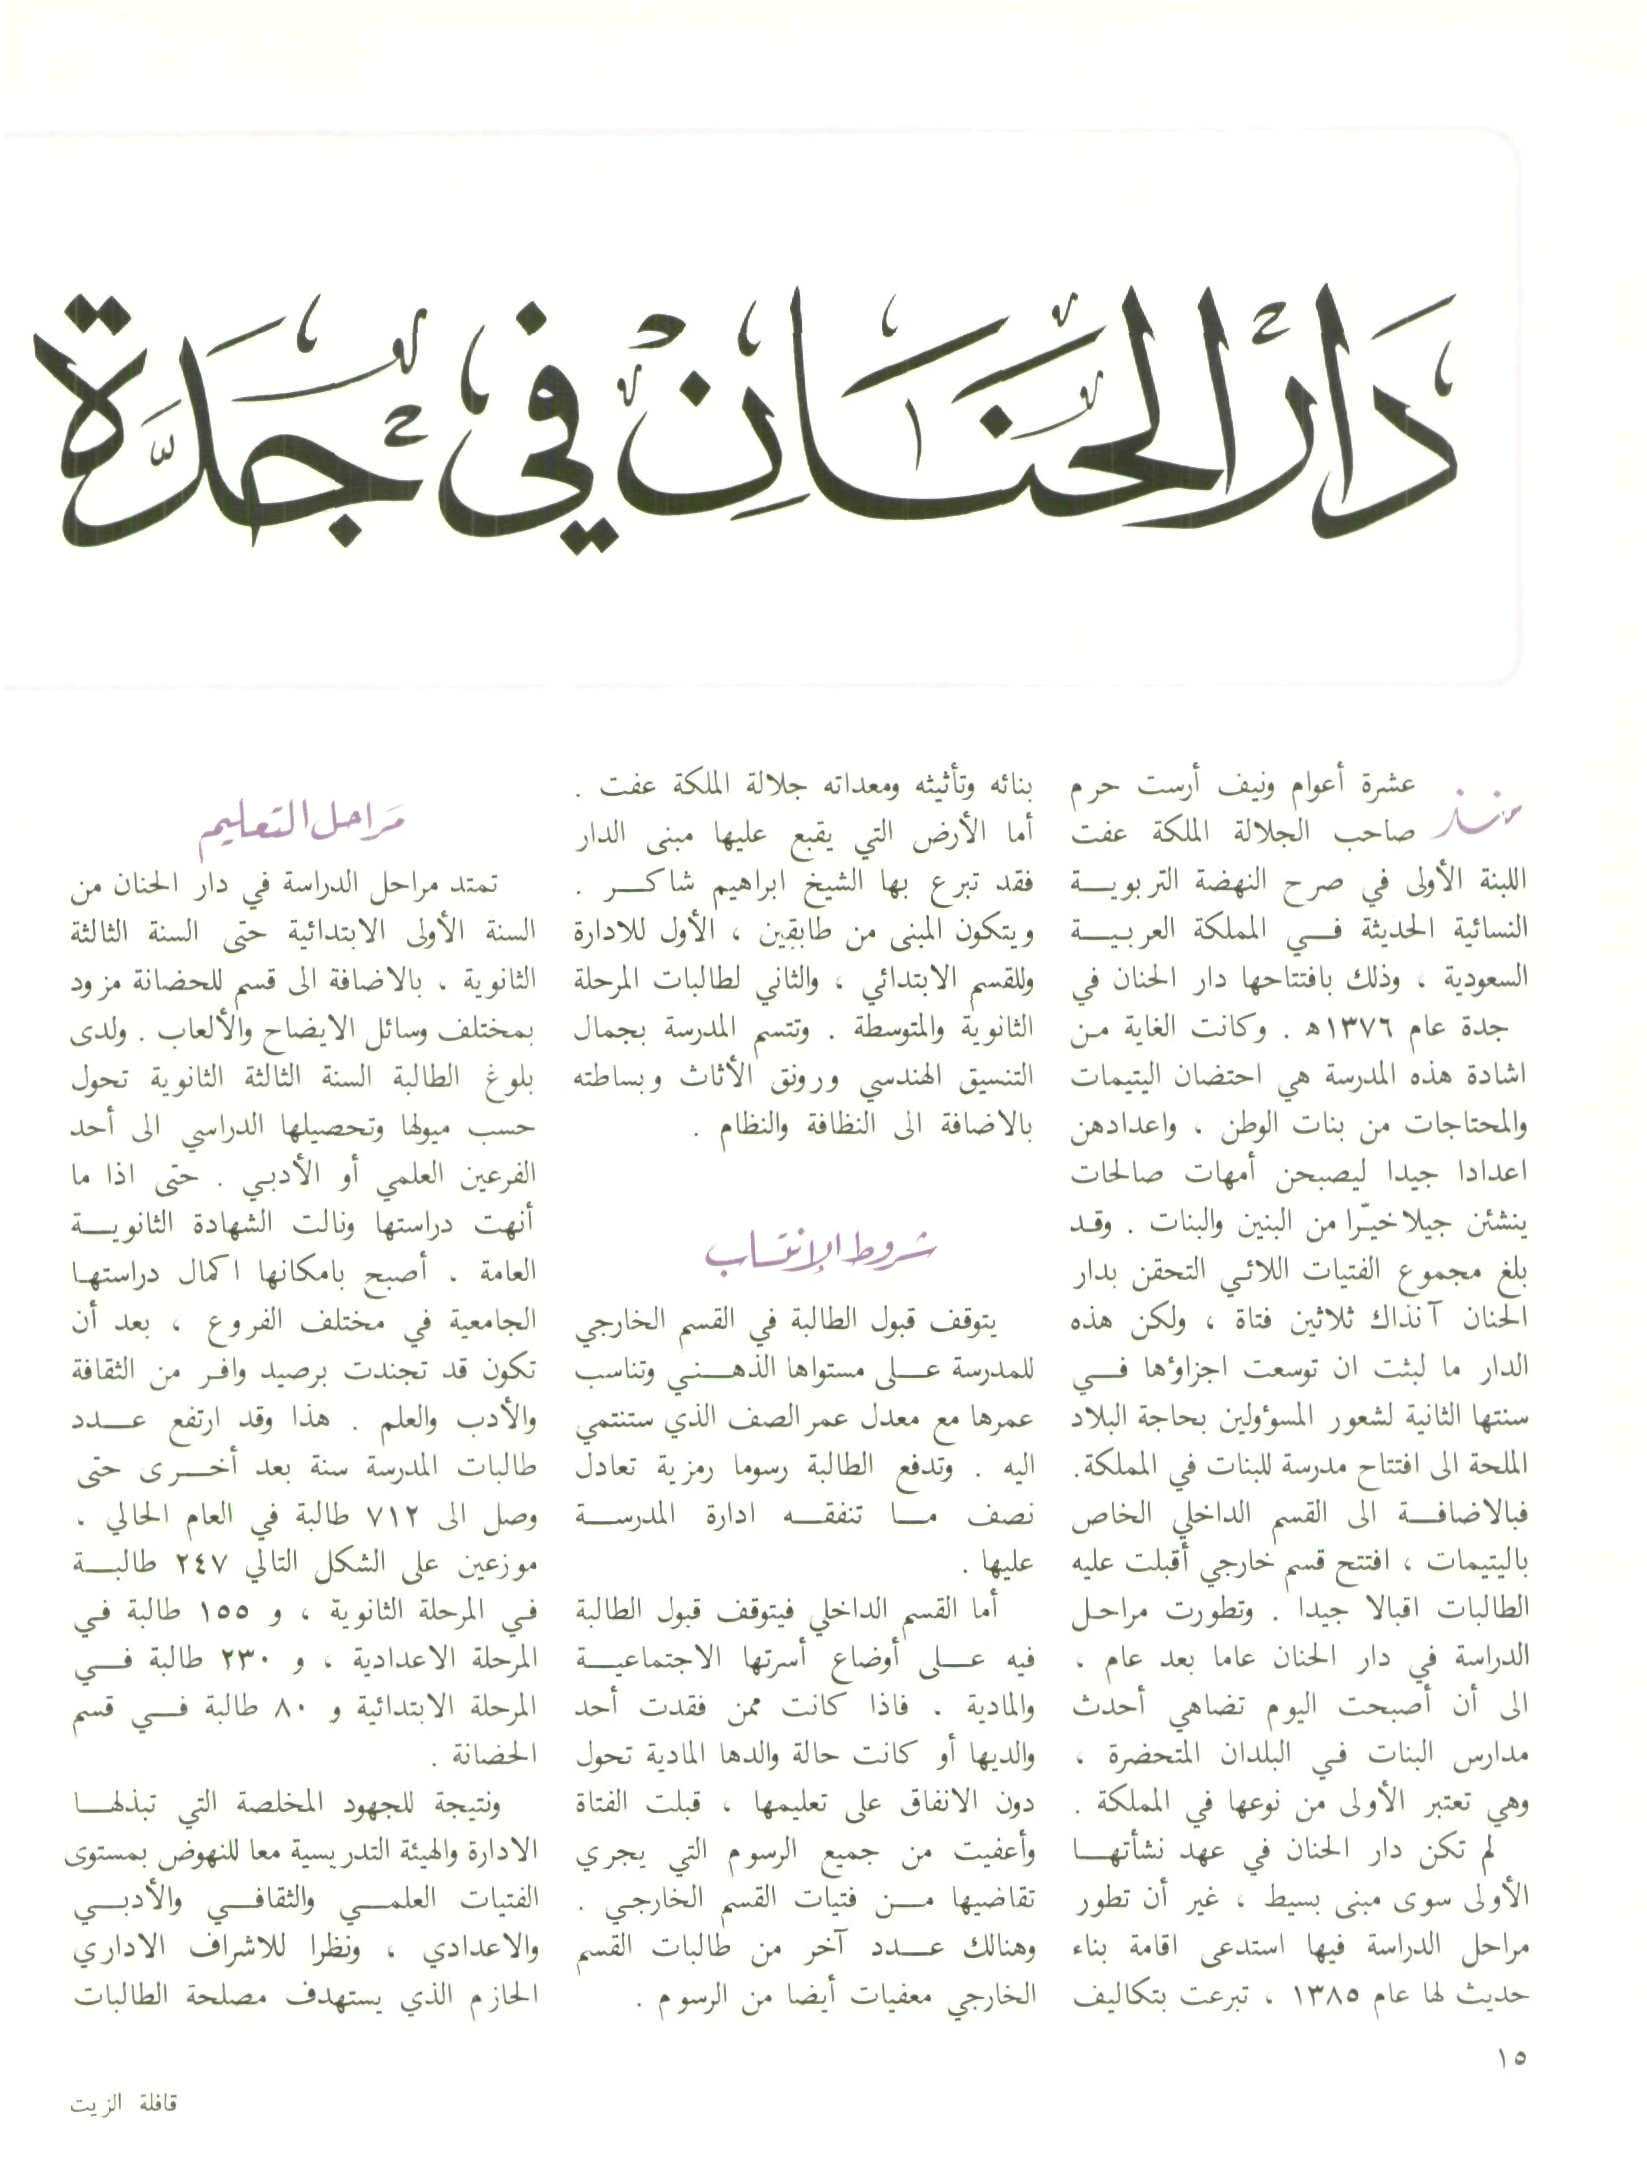 دَارُ الحَنَانِ في جُدَّة
منذ عشرة أعوام ونيف أرست حرم
صاحب الجلالة الملكة عفت
اللبنة الأولى في صرح النهضة التربويـــة
النسائية الحديثة فـــي المملكة العربيـــة
السعودية ، وذلك بافتتاحها دار الحنان في
جدة عام ١٣٧٦ه . وكانت الغاية مـن
اشادة هذه المدرسة هي احتضان اليتيمات
والمحتاجات من بنات الوطن ، واعدادهن
اعدادا جيدا ليصبحن أمهات صالحات
ينشئن جيلا خيّرا من البنين والبنات . وقـد
بلغ مجموع الفتيات اللائي التحقن بدار
الحنان آنذاك ثلاثين فتاة ، ولكن هذه
الدار ما لبثت ان توسعت اجزاؤها فـــي
سنتها الثانية لشعور المسؤولين بحاجة البلاد
الملحة الى افتتاح مدرسة للبنات في المملكة.
فبالاضافـــة الى القسم الداخلي الخاص
باليتيمات ، افتتح قسم خارجي أقبلت عليه
الطالبات اقبالا جيدا . وتطورت مراحـل
الدراسة في دار الحنان عاما بعد عام ،
الى أن أصبحت اليوم تضاهي أحدث
مدارس البنات فـي البلدان المتحضرة ،
وهي تعتبر الأولى من نوعها في المملكة .
لم تكن دار الحنان في عهد نشأتهـــا
الأولى سوى مبنى بسيط ، غير أن تطور
مراحل الدراسة فيها استدعى اقامة بناء
حديث لها عام ١٣٨٥ ، تبرعت بتكاليف
بنائه وتأثيثه ومعداته جلالة الملكة عفت .
أما الأرض التي يقبع عليها مبنى الدار
فقد تبرع بها الشيخ ابراهيم شاكـــر .
ويتكون المبنى من طابقين ، الأول للادارة
وللقسم الابتدائي ، والثاني لطالبات المرحلة
الثانوية والمتوسطة . وتتسم المدرسة بجمال
التنسيق الهندسي ورونق الأثاث وبساطته
بالاضافة الى النظافة والنظام .
شروط الإنتساب
يتوقف قبول الطالبة في القسم الخارجي
للمدرسة عـــلى مستواها الذهـــني وتناسب
عمرها مع معدل عمر الصف الذي ستنتمي
اليه . وتدفع الطالبة رسوما رمزية تعادل
نصف مـــا تنفقـــه ادارة المدرســـة
عليها .
أما القسم الداخلي فيتوقف قبول الطالبة
فيه عـــلى أوضاع أسرتها الاجتماعيـــة
والمادية . فاذا كانت ممن فقدت أحد
والديها أو كانت حالة والدها المادية تحول
دون الانفاق على تعليمها ، قبلت الفتاة
وأعفيت من جميع الرسوم التي يجري
تقاضيها مـــن فتيات القسم الخارجي .
وهنالك عـــدد آخر من طالبات القسم
الخارجي معفيات أيضا من الرسوم .
مَراحل التعليم
تمتد مراحل الدراسة في دار الحنان من
السنة الأولى الابتدائية حتى السنة الثالثة
الثانوية ، بالاضافة الى قسم للحضانة مزود
بمختلف وسائل الايضاح والألعاب . ولدى
بلوغ الطالبة السنة الثالثة الثانوية تحول
حسب ميولها وتحصيلها الدراسي الى أحد
الفرعين العلمي أو الأدبـي . حتى اذا ما
أنهت دراستها ونالت الشهادة الثانويـــة
العامة . أصبح بامكانها اكمال دراستهـا
الجامعية في مختلف الفروع ، بعد أن
تكون قد تجندت برصيد وافـر من الثقافة
والأدب والعلم . هذا وقد ارتفع عـــدد
طالبات المدرسة سنة بعد أخـــرى حتى
وصل الى ٧١٢ طالبة في العام الحالي .
موزعين على الشكل التالي ٢٤٧ طالبـــة
فـي المرحلة الثانوية ، و ١٥٥ طالبة فـي
المرحلة الاعدادية ، و ٢٣٠ طالبة فـــي
المرحلة الابتدائية و ٨٠ طالبة فـــي قسم
الحضانة .
ونتيجة للجهود المخلصة التي تبذلهـــا
الادارة والهيئة التدريسية معا للنهوض بمستوى
الفتيات العلمـــي والثقافـــي والأدبـــي
والاعدادي ، ونظرا للاشراف الاداري
الحازم الذي يستهدف مصلحة الطالبات
١٥
قافلة الزيت